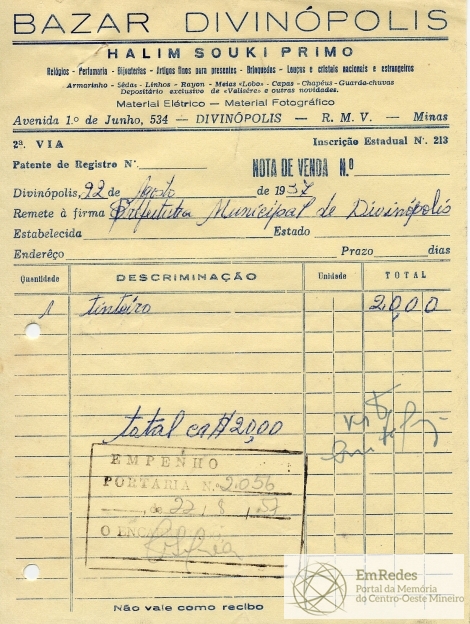 BAZAR DIVINÓPOLIS
HALIM SOUKI PRIMO
Relógios - Perfumaria - Bijouterias - Artigos finos para presentes - Brinquedos - Louças e cristais nacionais e estrangeiros
Armarinho - Sêdas - Linhos - Rayon - Meias «Lobo» - Capas - Chapéus - Guarda-chuvas
Depositário exclusivo de «Valisére» e outras novidades.
Material Elétrico — Material Fotográfico
Avenida 1.º de Junho, 534 — DIVINÓPOLIS — R. M. V. — Minas
2ª. VIA Inscrição Estadual Nº. 213
Patente de Registro Nº. NOTA DE VENDA N.º
Divinópolis, 22 de Agosto de 1957
Remete à firma Prefeitura Municipal de Divinópolis
Estabelecida Estado
Endereço Prazo dias
Quantidade DESCRIMINAÇÃO Unidade TOTAL
1 tinteiro 20,00
total cr$ 20,00
EMPENHO
PORTARIA N. 2.056
22 8 57
Não vale como recibo
EmRedes
Portal da Memória
do Centro-Oeste Mineiro